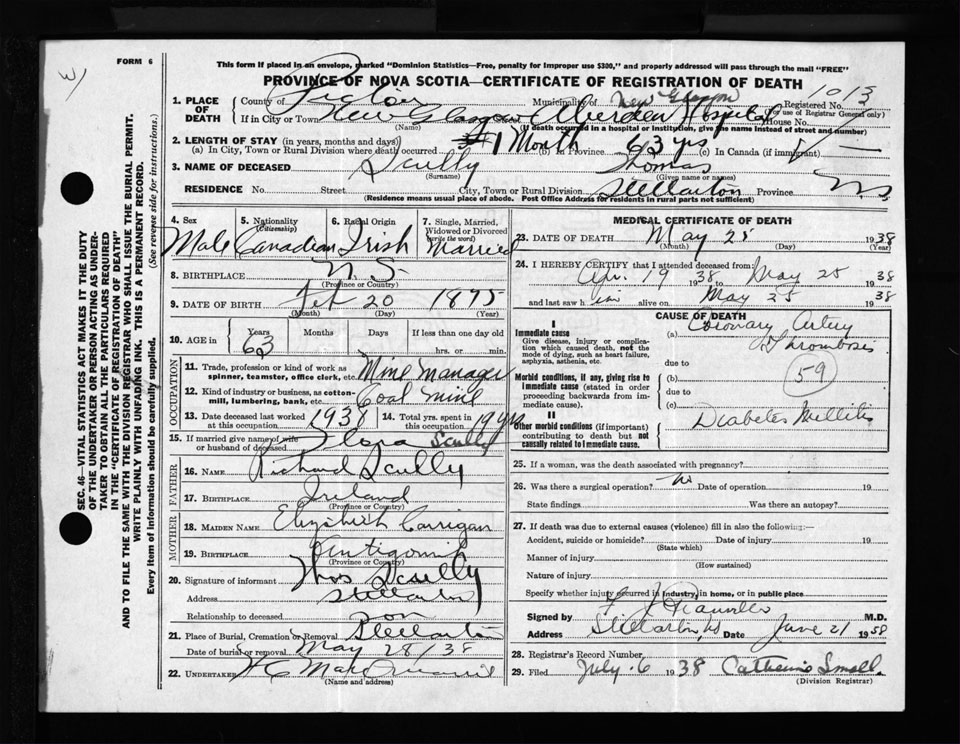 W)
FORM 6
This form if placed in an envelope, marked "Dominion Statistics—Free, penalty for improper use $300," and properly addressed will pass through the mail "FREE"
PROVINCE OF NOVA SCOTIA—CERTIFICATE OF REGISTRATION OF DEATH
SEC. 46—VITAL STATISTICS ACT MAKES IT THE DUTY
OF THE UNDERTAKER OR PERSON ACTING AS UNDER-
TAKER TO OBTAIN ALL THE PARTICULARS REQUIRED
IN THE "CERTIFICATE OF REGISTRATION OF DEATH"
AND TO FILE THE SAME WITH THE DIVISION REGISTRAR WHO SHALL ISSUE THE BURIAL PERMIT.
WRITE PLAINLY WITH UNFADING INK. THIS IS A PERMANENT RECORD.
Every item of information should be carefully supplied. (See reverse side for instructions.)
1013
1. PLACE OF DEATH County of Pictou Municipality of New Glasgow Registered No.
(For use of Registrar General only)
If in City or Town New Glasgow Aberdeen Hospital House No.
(Name) (If death occurred in a hospital or institution, give the name instead of street and number)
2. LENGTH OF STAY (in years, months and days)
(a) In City, Town or Rural Division where death occurred 1 Month (b) In Province 63 yrs (c) In Canada (if immigrant)
3. NAME OF DECEASED Scully Thomas
(Surname) (Given name or names)
RESIDENCE No. Street City, Town or Rural Division Stellarton Province N.S.
(Residence means usual place of abode. Post Office Address for residents in rural parts not sufficient)
4. Sex 5. Nationality (Citizenship) 6. Racial Origin 7. Single, Married, Widowed or Divorced (write the word)
Male Canadian Irish Married
8. BIRTHPLACE N.S.
(Province or Country)
9. DATE OF BIRTH Feb 20 1875
(Month) (Day) (Year)
10. AGE in Years Months Days If less than one day old
63 hrs. or min.
OCCUPATION
11. Trade, profession or kind of work as spinner, teamster, office clerk, etc. Mine Manager
12. Kind of industry or business, as cotton-mill, lumbering, bank, etc. Coal Mine
13. Date deceased last worked at this occupation 1931 14. Total yrs. spent in this occupation 19 yrs
15. If married give name of wife or husband of deceased Flora Scully
FATHER
16. NAME Richard Scully
17. BIRTHPLACE Ireland
(Province or Country)
MOTHER
18. MAIDEN NAME Elizabeth Carrigan
19. BIRTHPLACE Antigonish
(Province or Country)
20. Signature of informant Thos Scully
Address Stellarton
Relationship to deceased Son
21. Place of Burial, Cremation or Removal Stellarton
Date of burial or removal May 28/38
22. UNDERTAKER
(Name and address)
MEDICAL CERTIFICATE OF DEATH
23. DATE OF DEATH May 25 1938
(Month) (Day) (Year)
24. I HEREBY CERTIFY that I attended deceased from:
Apr. 19 1938 to May 25 1938
and last saw him alive on May 25 1938
CAUSE OF DEATH
I
Immediate cause
Give disease, injury or complication which caused death, not the mode of dying, such as heart failure, asphyxia, asthenia, etc.
(a) Coronary Artery Thrombosis
due to
Morbid conditions, if any, giving rise to immediate cause (stated in order proceeding backwards from immediate cause).
(b) 59
due to
(c)
II
Other morbid conditions (if important) contributing to death but not causally related to immediate cause.
Diabetes Mellitis
25. If a woman, was the death associated with pregnancy?
26. Was there a surgical operation? no Date of operation 19
State findings Was there an autopsy?
27. If death was due to external causes (violence) fill in also the following:—
Accident, suicide or homicide? Date of injury 19
(State which)
Manner of injury
(How sustained)
Nature of injury
Specify whether injury occurred in industry, in home, or in public place
Signed by M.D.
Address Stellarton NS Date June 21 19
28. Registrar's Record Number
29. Filed July 6 1938 Catherine Small
(Division Registrar)